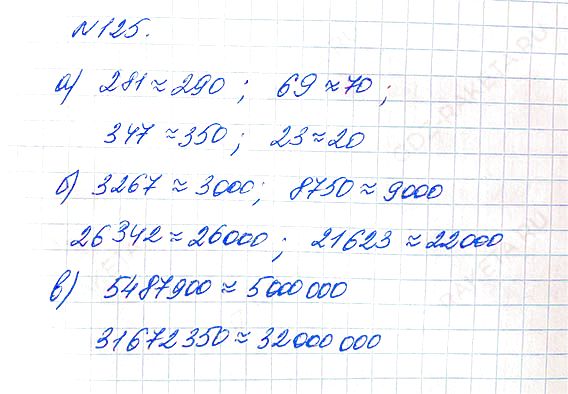 №125.
а) 281≈290; 69≈70;
347≈350; 23≈20
б) 3267≈3000; 8750≈9000
26342≈26000; 21623≈22000
в) 5487900≈5000000
31672350≈32000000